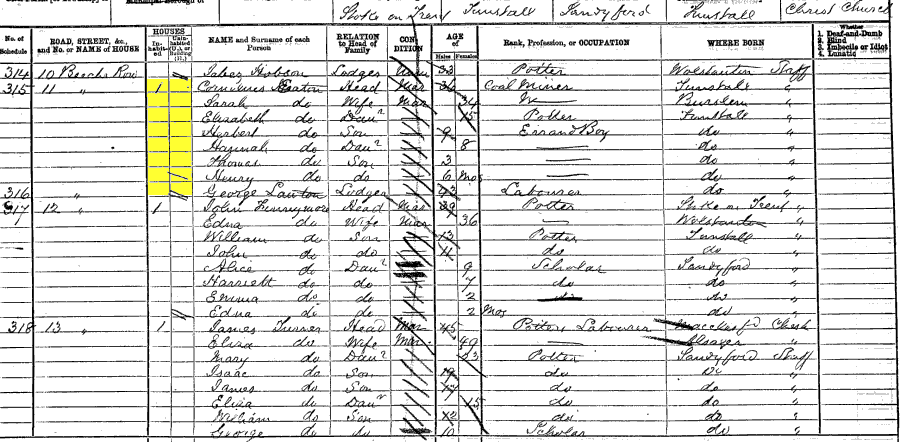 Stoke on Trent Tunstall Sandyford Tunstall Christ Church
No. of Schedule ROAD, STREET, &c., and No. or NAME of HOUSE HOUSES Inhabited Uninhabited (U.), or Building (B.) NAME and Surname of each Person RELATION to Head of Family CONDITION AGE of Males Females Rank, Profession, or OCCUPATION WHERE BORN Whether 1. Deaf-and-Dumb 2. Blind 3. Imbecile or Idiot 4. Lunatic
314 10 Beechs Row Hobson Lodger 33 Potter Wolstanton Staff
315 11 " 1 Heaton Head Mar 36 Coal Miner Tunstall "
Sarah do Wife Mar 34 Burslem "
Elizabeth do Daur 15 Potter Tunstall "
Herbert do Son 9 Errand Boy do "
Hannah do Daur 8 do "
Thomas do Son 3 do "
Henry do do 6 Mos do "
316 " George Lawton Lodger Labourer do "
317 12 " 1 John Head Mar 39 Potter Stoke on Trent "
Edna do Wife Mar 36 Wolstanton "
William do Son 13 Potter Tunstall "
John do do 11 do do "
Alice do Daur 9 Scholar Sandyford "
Harriett do do 7 do do "
Emma do do 2 do do "
Edna do do 2 Mos do "
318 13 " 1 James Turner Head Mar 45 Potters Labourer Macclesfield Chesh
Eliza do Wife Mar 49 Alsager "
Mary do Daur 23 Potter Sandyford Staff
Isaac do Son 19 do do "
James do Son 17 do do "
Eliza do Daur 15 do do "
William do Son 12 do do "
George do do 10 Scholar do "